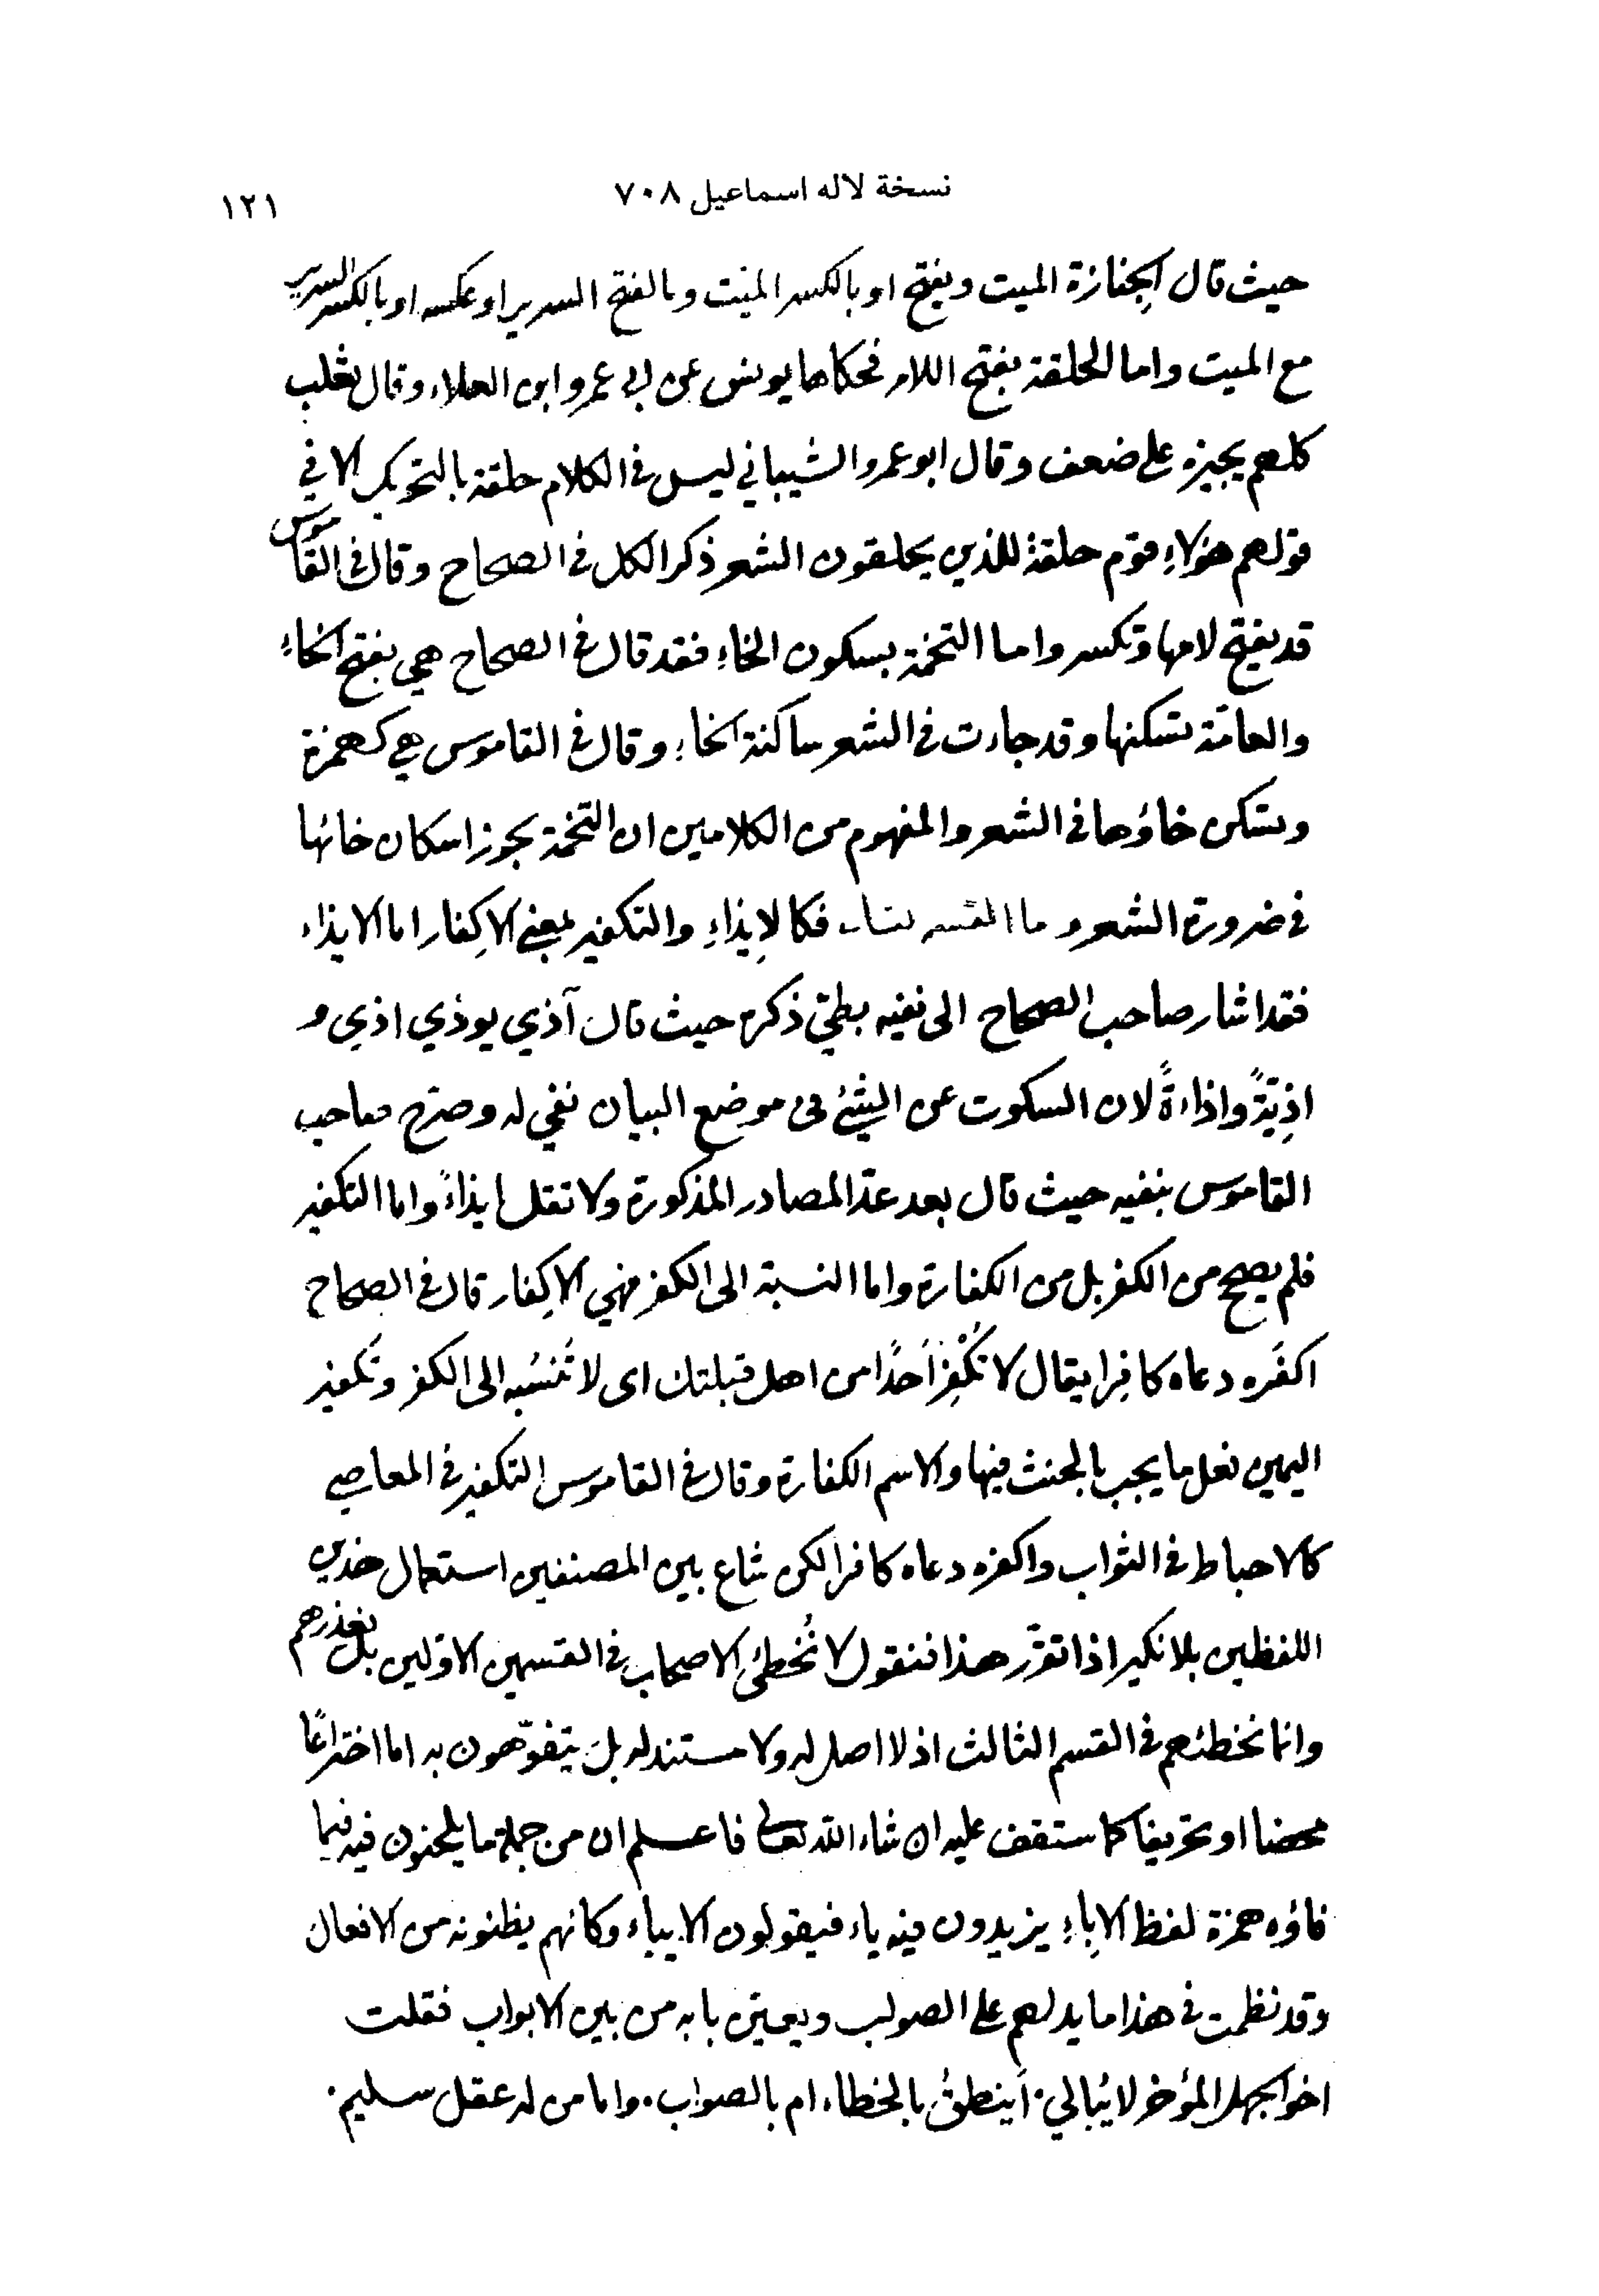 نسخة لاله اسماعيل ٧٠٨
١٢١
حيث قال الجِنازة الميت ويفتح او بالكسر الميت وبالفتح السرير او عكسه او بالكسر السرير
مع الميت واما الحلقة بفتح اللام فحكاها يونس عن ابي عمرو ابن العلاء وقال ثعلب
كلهم يجيزه على ضعف وقال ابو عمرو الشيباني ليس في الكلام حلقة بالتحريك الا في
قولهم هؤلاءِ قوم حلقة للذين يحلقون الشعر ذكر الكل في الصحاح وقال في القاموس
قد يفتح لامها وتكسر واما التخمة بسكون الخاءِ فقد قال في الصحاح هي بفتح الخاءِ
والعامّة تسكنها وقد جاءت في الشعر ساكنة الخاءِ وقال في القاموس هي كهمزة
وتسكن خاؤها في الشعر والمفهوم من الكلامين ان التخمة يجوز اسكان خائها
في ضرورة الشعر و ما فكالاِيذاءِ والتكفير بمعنى الاِكفار اما الايذاء
فقد اشار صاحب الصحاح الى نفيه بطيّ ذكره حيث قال آذي يوذي اذي و
اذِيّةً واذاءةً لان السكوت عن الشئ في موضع البيان نفي له وصرّح صاحب
القاموس بنفيه حيث قال بعد عدّ المصادر المذكورة ولا تقل ايذاءً واما التكفير
فلم يصح من الكفر بل من الكفارة واما النسبة الى الكفر فهي الاِكفار قال في الصحاح
اكفَره دعاه كافِرا يقال لا تُكْفِر اَحدًا من اهل قبلتك اى لا تَنسُبه الى الكفر وتَكفير
اليمين فعل ما يجب بالحنث فيها والاسم الكفارة وقال في القاموس التكفير في المعاصي
كالاحباط في الثواب واكفره دعاه كافرا لكن شاع بين المصنفين استعمال هذين
اللفظين بلا نكير اذا تقرّر هذا فنقول لا نُخطئ الاصحاب في القسمين الاوّلين بل نعذرهم
وانما نخطئهم في القسم الثالث اذ لا اصل له ولا مستند له بل يتفوّهون به اما اختراعًا
محضا او تحريفا كما ستقف عليه ان شاء الله تعالى فاعلم ان من جملة ما يلحنون فيه فيما
فاؤه همزة لفظ الاِباءِ يزيدون فيه ياء فيقولون الايباء وكانهم يظنونه من الافعال
وقد نظمت في هذا ما يدلهم على الصواب ويعيّن بابه من بين الابواب فقلت
اخو الجهل المؤخر لا يُبالي. اَينطقُ بالخطاء ام بالصواب. واما من له عقل سليم.